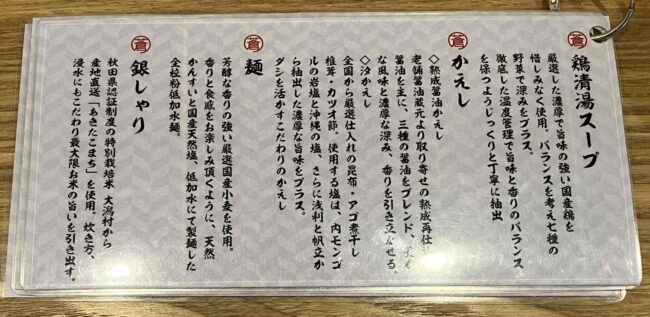 蒼
鶏清湯スープ
厳選した濃厚で旨味の強い国産鶏を
惜しみなく使用。バランスを考え七種の
野菜で深みをプラス。
徹底した温度管理で旨味と香りのバランス
を保つようじっくりと丁寧に抽出
蒼
かえし
◇熟成醤油かえし
老舗醤油蔵元より取り寄せの熟成再仕
醤油を主に、三種の醤油をブレンド、
な風味と濃厚な深み、香りを引き立たせる。
◇汐かえし
全国から厳選仕入れの昆布・アゴ煮干し
椎茸・カツオ節。使用する塩は、内モンゴ
ルの岩塩と沖縄の塩、さらに浅利と帆立か
ら抽出した濃厚な旨味をプラス。
ダシを活かすこだわりのかえし
蒼
麺
芳醇な香りの強い厳選国産小麦を使用。
香りと食感をお楽しみ頂くように、天然
かんすいと国産天然塩、低加水にて製麺した
全粒粉低加水麺。
蒼
銀しゃり
秋田県認証制度の特別栽培米 大潟村から
産地直送「あきたこまち」を使用。炊き方、
浸水にもこだわり最大限お米の旨いを引き出す。